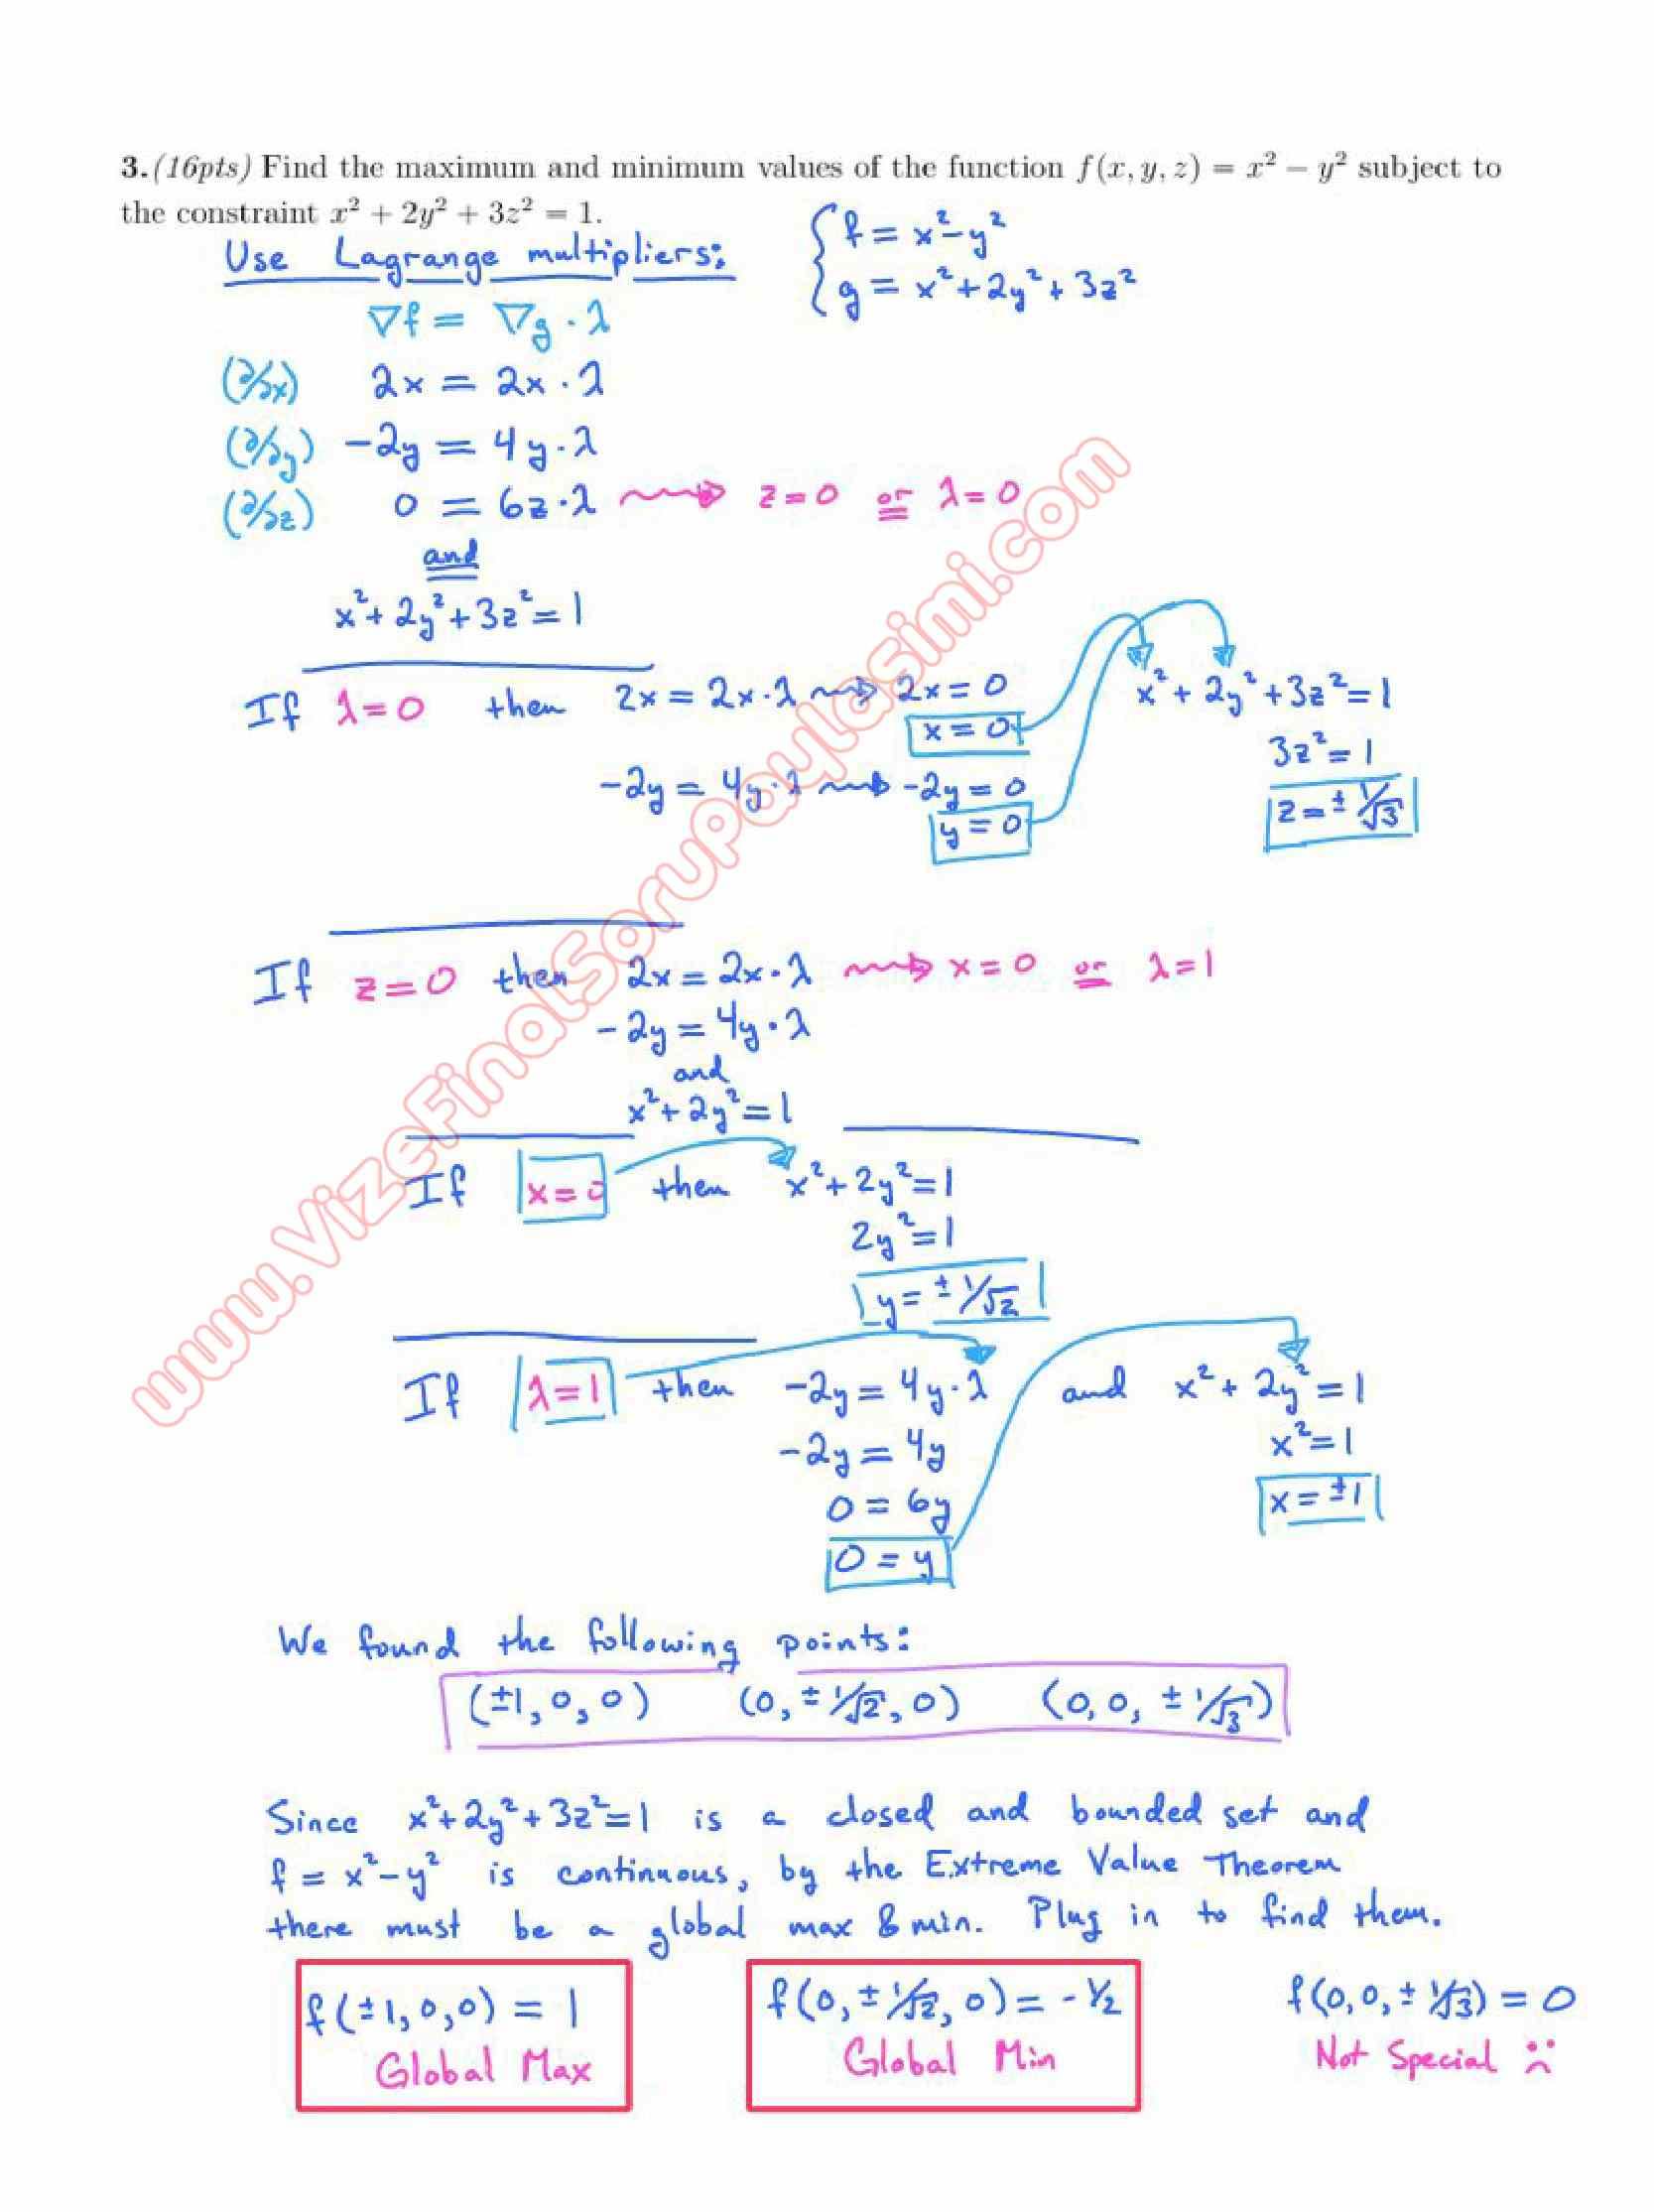 3.(16pts) Find the maximum and minimum values of the function f(x, y, z) = x² − y² subject to
the constraint x² + 2y² + 3z² = 1.
Use Lagrange multipliers:
{ f = x²-y²
g = x²+2y²+3z²
∇f = ∇g · λ
(∂/∂x) 2x = 2x · λ
(∂/∂y) -2y = 4y · λ
(∂/∂z) 0 = 6z · λ ⟿ z=0 or λ=0
and
x²+2y²+3z²=1
If λ=0 then 2x = 2x·λ ⟿ 2x=0
x=0
-2y = 4y·λ ⟿ -2y=0
y=0
x²+2y²+3z²=1
3z²=1
z=±1/√3
If z=0 then 2x=2x·λ ⟿ x=0 or λ=1
-2y=4y·λ
and
x²+2y²=1
If x=0 then x²+2y²=1
2y²=1
y=±1/√2
If λ=1 then -2y=4y·λ and x²+2y²=1
-2y=4y
0=6y
0=y
x²=1
x=±1
We found the following points:
(±1,0,0) (0,±1/√2,0) (0,0,±1/√3)
Since x²+2y²+3z²=1 is a closed and bounded set and
f=x²-y² is continuous, by the Extreme Value Theorem
there must be a global max & min. Plug in to find them.
f(±1,0,0) = 1
Global Max
f(0,±1/√2,0) = -1/2
Global Min
f(0,0,±1/√3) = 0
Not Special :(
www.VizeFinalSoruPaylasimi.com